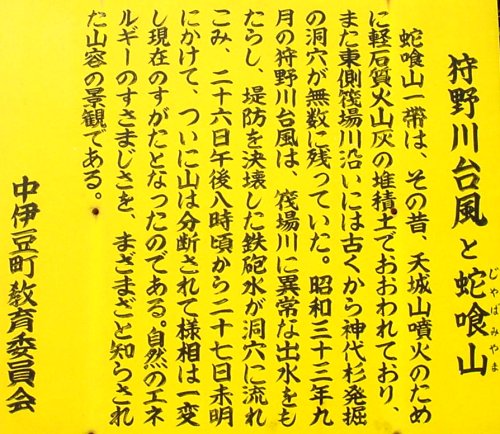 狩野川台風と蛇喰山
じゃばみやま
蛇喰山一帯は、その昔、天城山噴火のため
に軽石質火山灰の堆積土でおおわれており、
また東側筏場川沿いには古くから神代杉発掘
の洞穴が無数に残っていた。昭和三十三年九
月の狩野川台風は、筏場川に異常な出水をも
たらし、堤防を決壊した鉄砲水が洞穴に流れ
こみ、二十六日午後八時頃から二十七日未明
にかけて、ついに山は分断されて様相は一変
し現在のすがたとなったのである。自然のエネ
ルギーのすさまじさを、まざまざと知らされ
た山容の景観である。
中伊豆町教育委員会